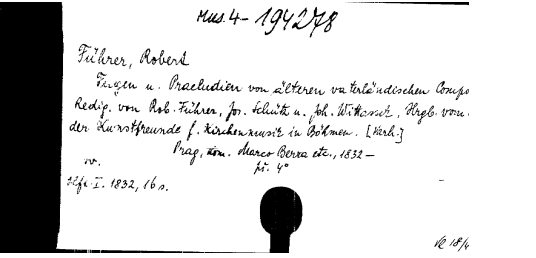 Mus. 4 - 194278
Führer, Robert
Fugen u. Praeludien von älteren vaterländischen Compo
Redig. von Rob. Führer, Jos. Schütz u. Joh. Wittassek, Hrgb. von
der Kunstfreunde f. Kirchenmusik in Böhmen.
Prag, Marco Berra etc., 1832 -
4°
Heft I. 1832, 16 s.